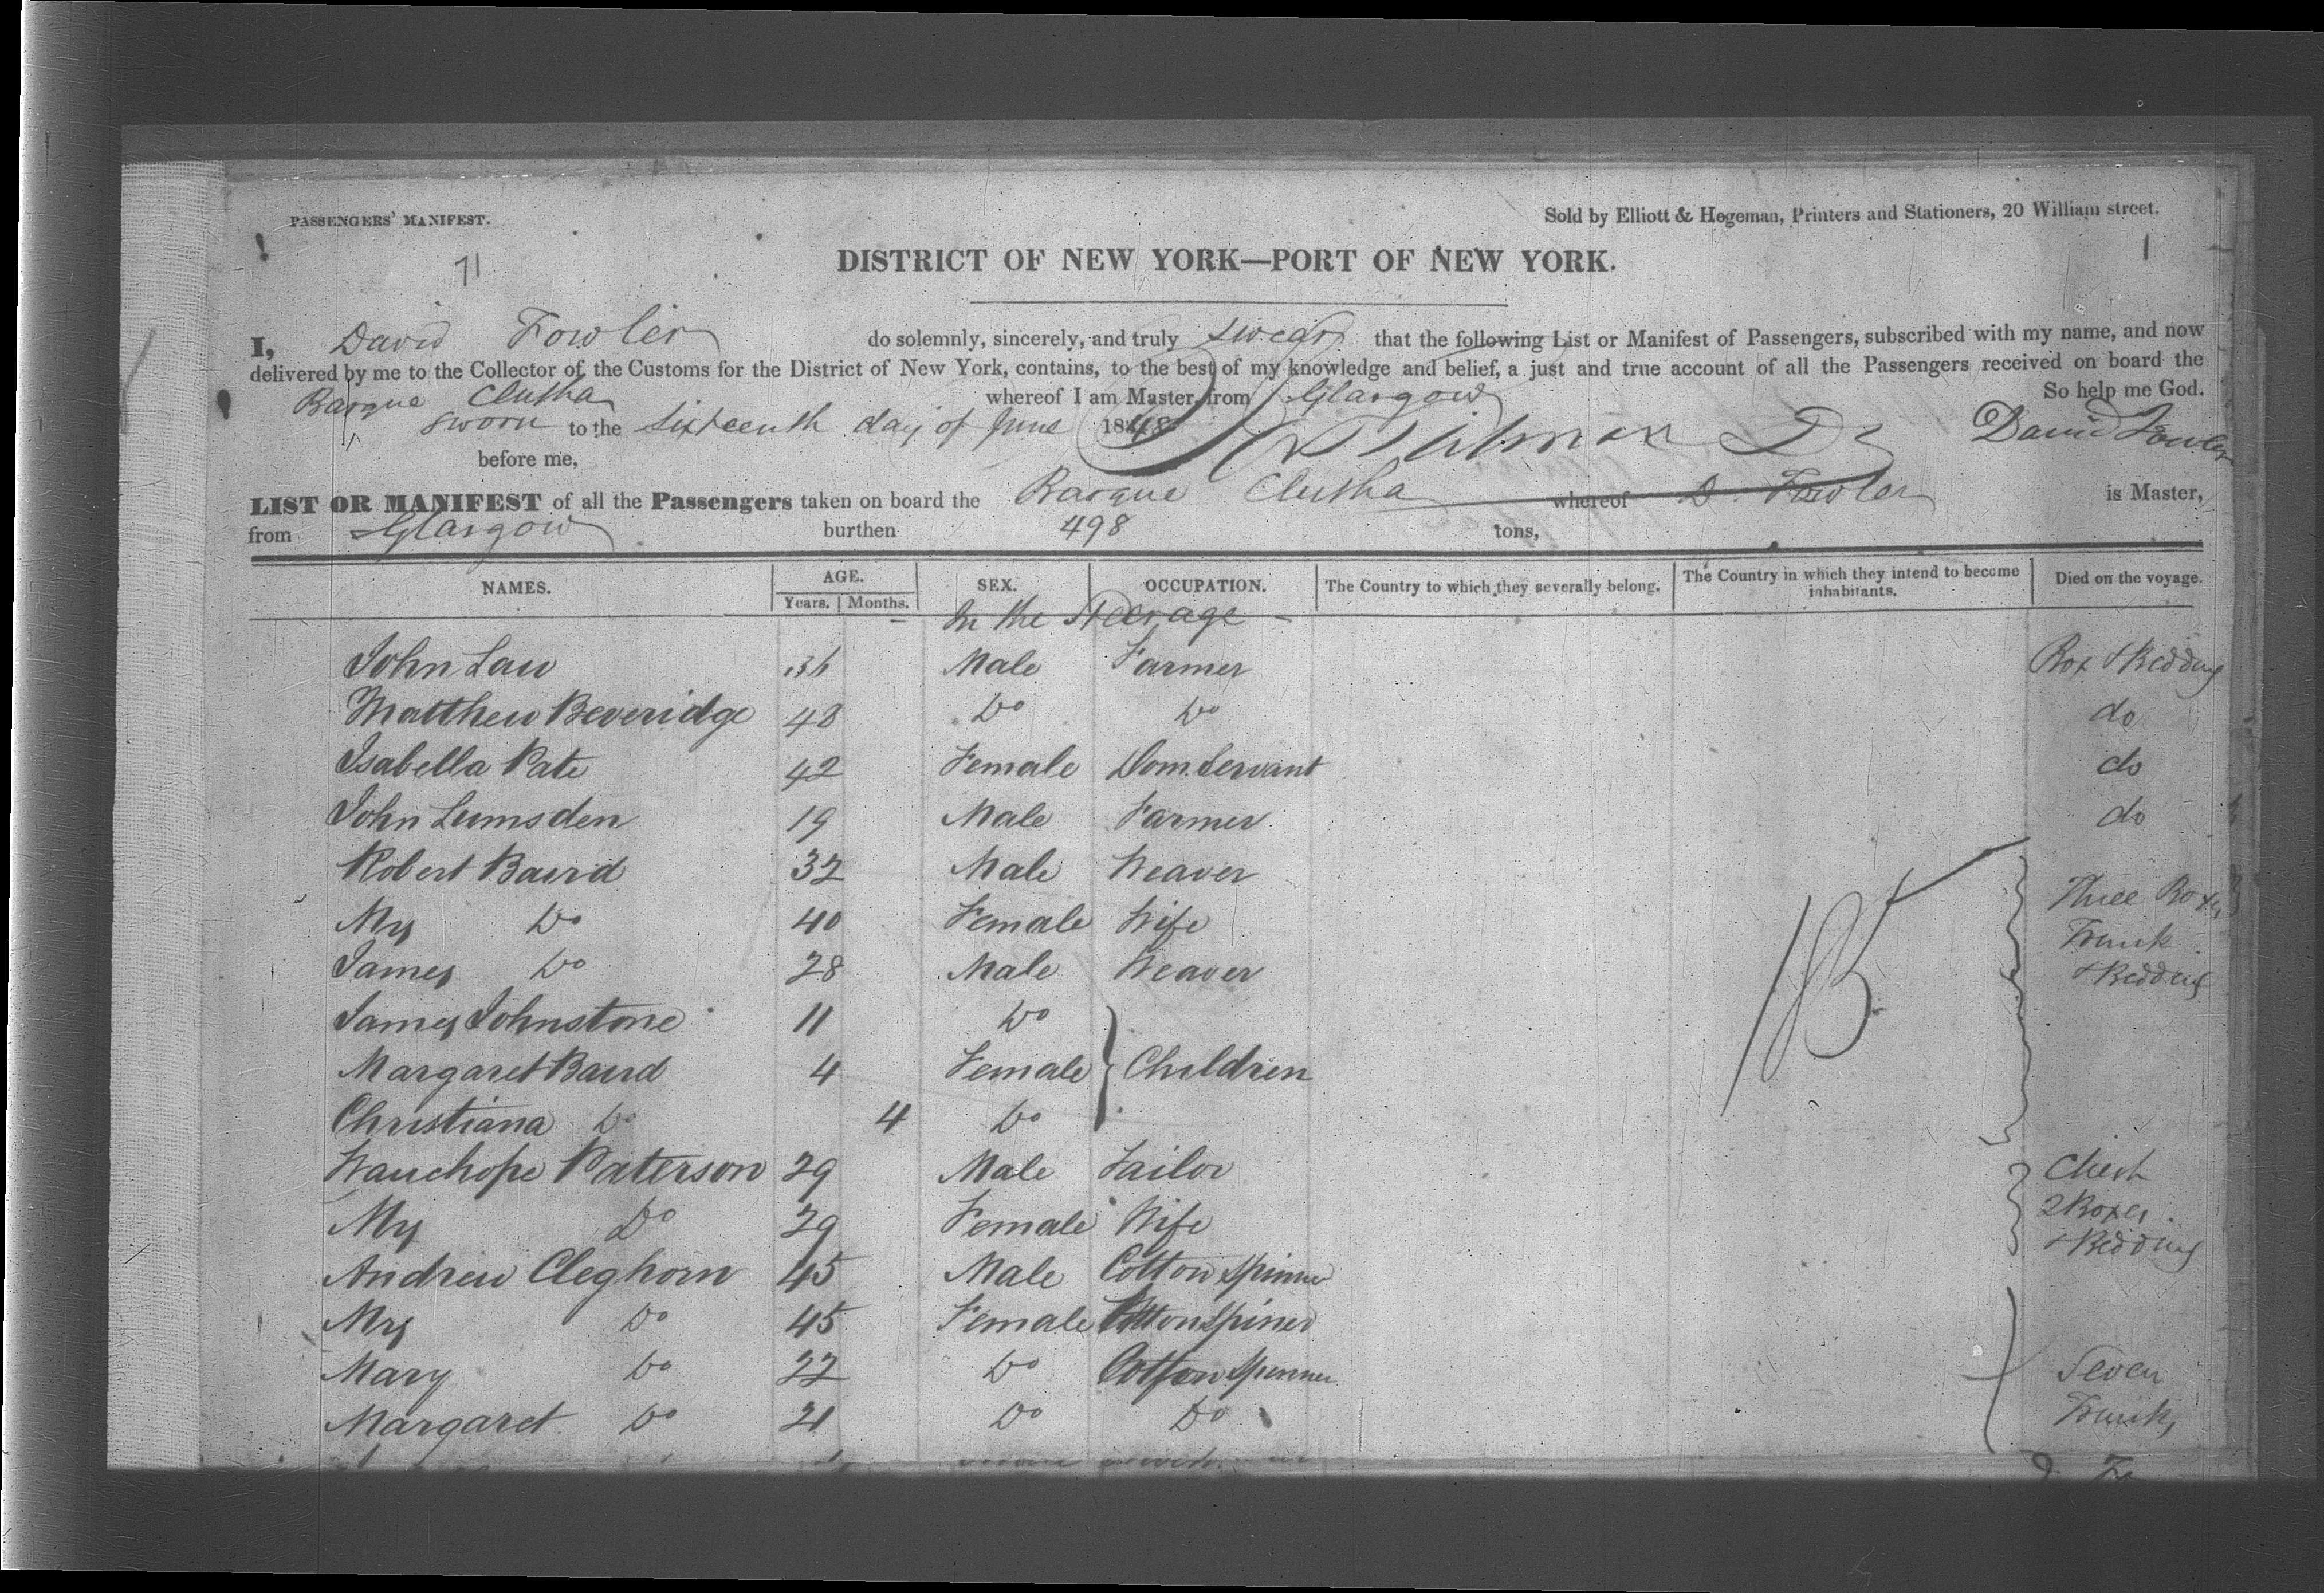 PASSENGERS' MANIFEST.
Sold by Elliott & Hegeman, Printers and Stationers, 20 William street.
71
DISTRICT OF NEW YORK—PORT OF NEW YORK.
I, David Fowler do solemnly, sincerely, and truly swear that the following List or Manifest of Passengers, subscribed with my name, and now
delivered by me to the Collector of the Customs for the District of New York, contains, to the best of my knowledge and belief, a just and true account of all the Passengers received on board the
Barque Clutha whereof I am Master, from Glasgow So help me God.
sworn to the sixteenth day of June 1848 David Fowler
before me,
LIST OR MANIFEST of all the Passengers taken on board the Barque Clutha whereof D. Fowler is Master,
from Glasgow burthen 498 tons,
NAMES. AGE. SEX. OCCUPATION. The Country to which they severally belong. The Country in which they intend to become inhabitants. Died on the voyage.
Years. Months.
- In the Steerage -
John Law 36 Male Farmer Box & Bedding
Matthew Beveridge 48 Do Do do
Isabella Pate 42 Female Dom. Servant do
John Lumsden 19 Male Farmer do
Robert Baird 32 Male Weaver Three Boxes
Mrs Do 40 Female Wife Trunk
James Do 28 Male Weaver & Bedding
James Johnstone 11 Do
Margaret Baird 4 Female Children
Christiana Do 4 Do
Wauchope Paterson 29 Male Tailor Chest
Mrs Do 29 Female Wife 2 Boxes & Bedding
Andrew Cleghorn 45 Male Cotton Spinner
Mrs Do 45 Female Cotton Spiner
Mary Do 22 Do Cotton Spinner Seven
Margaret Do 21 Do Do Trunks